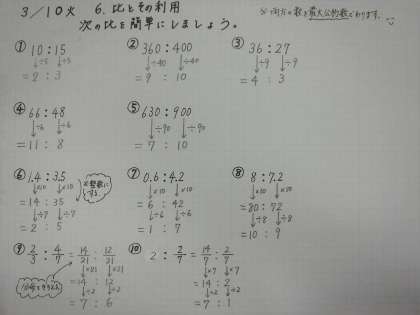 3/10火 6. 比とその利用
次の比を簡単にしましょう。
※両方の数を最大公約数でわります。
① 10:15
↓÷5 ↓÷5
= 2 : 3
② 360:400
↓÷40 ↓÷40
= 9 : 10
③ 36:27
↓÷9 ↓÷9
= 4 : 3
④ 66:48
↓÷6 ↓÷6
= 11 : 8
⑤ 630:900
↓÷90 ↓÷90
= 7 : 10
⑥ 1.4:3.5
↓×10 ↓×10
= 14 : 35
↓÷7 ↓÷7
= 2 : 5
※整数にする
⑦ 0.6:4.2
↓×10 ↓×10
= 6 : 42
↓÷6 ↓÷6
= 1 : 7
⑧ 8:7.2
↓×10 ↓×10
= 80 : 72
↓÷8 ↓÷8
= 10 : 9
⑨ 2/3 : 4/7 = 14/21 : 12/21
↓×21 ↓×21
= 14 : 12
↓÷2 ↓÷2
= 7 : 6
⑩ 2 : 2/7 = 14/7 : 2/7
↓×7 ↓×7
= 14 : 2
↓÷2 ↓÷2
= 7 : 1